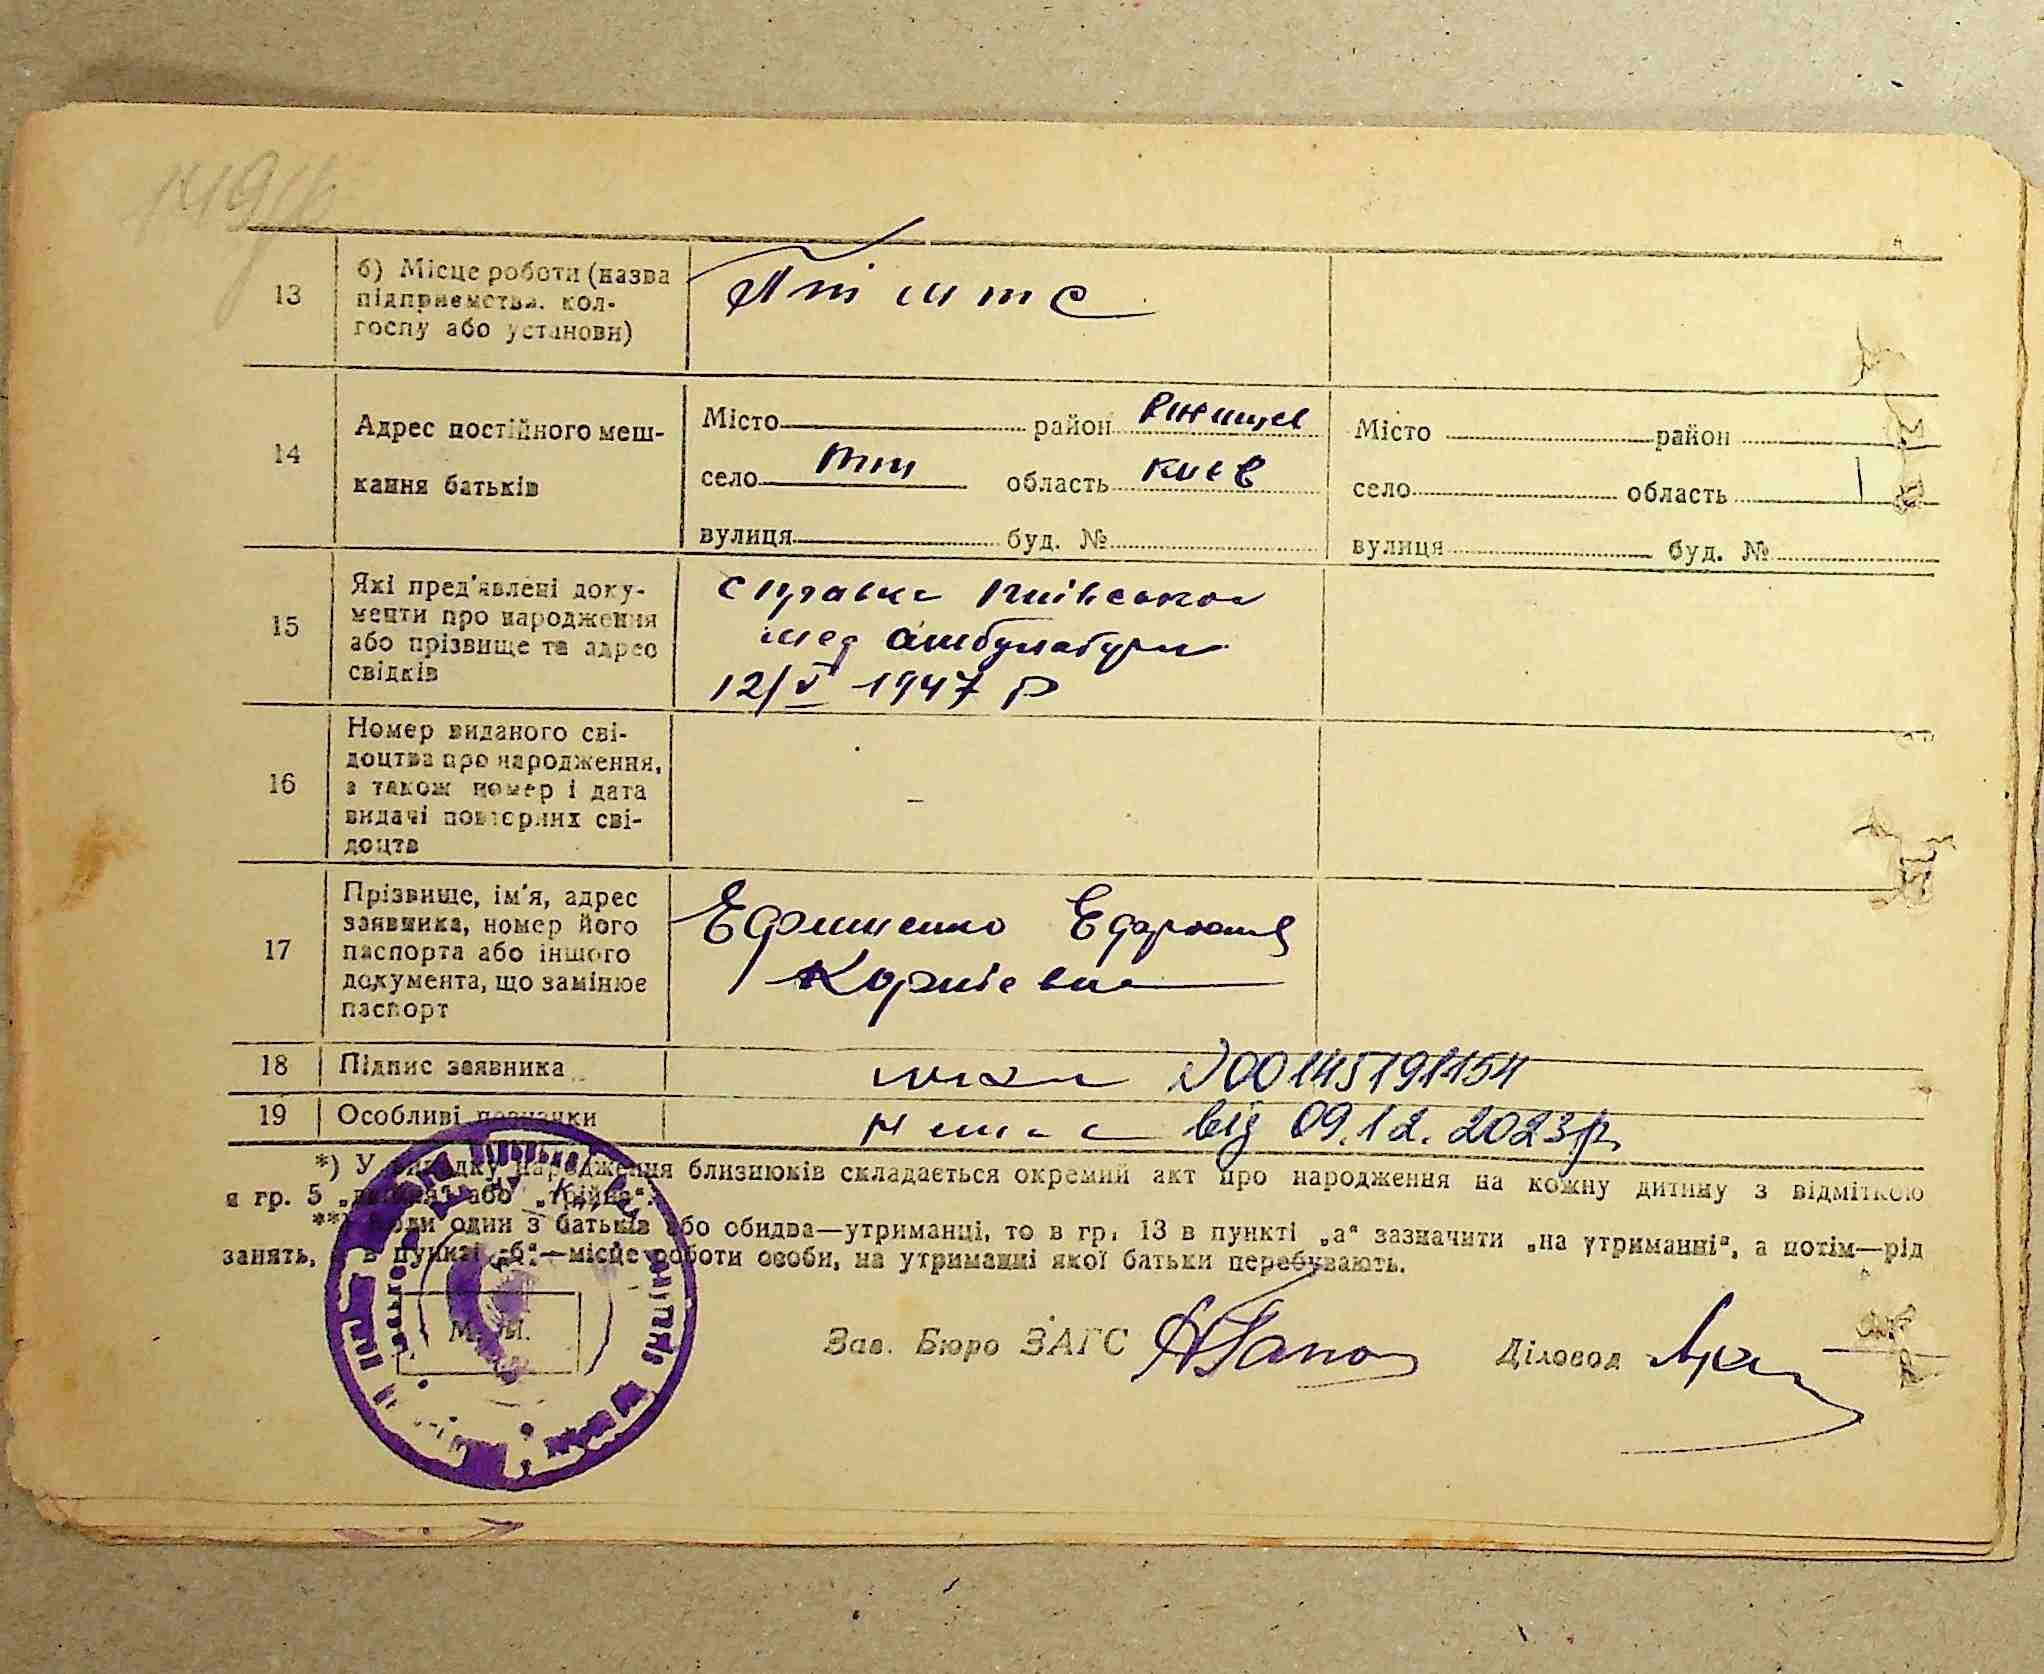 13
б) Місце роботи (назва
підприємства, кол-
госпу або установи)
МТС
14
Адрес постійного меш-
кання батьків
Місто район Ржищев
село область Киев
вулиця буд. №
Місто район
село область
вулиця буд. №
15
Які пред'явлені доку-
менти про народження
або прізвище та адрес
свідків
справка
мед амбулатории
12/V 1947 р
16
Номер виданого сві-
доцтва про народження,
а також номер і дата
видачі повторних сві-
доцтв
17
Прізвище, ім'я, адрес
заявника, номер його
паспорта або іншого
документа, що замінює
паспорт
Ефименко
Корніевна
18
Підпис заявника
N00145191154
19
Особливі позначки
Немае від 09.12.2023р.
*) У випадку народження близнюків складається окремий акт про народження на кожну дитину з відміткою
в гр. 5 „двійня" або „трійня".
**) Коли один з батьків або обидва—утриманці, то в гр. 13 в пункті „а" зазначити „на утриманні", а потім—рід
занять, а в пункті „б"—місце роботи особи, на утриманні якої батьки перебувають.
М. П.
Зав. Бюро ЗАГС
Діловод